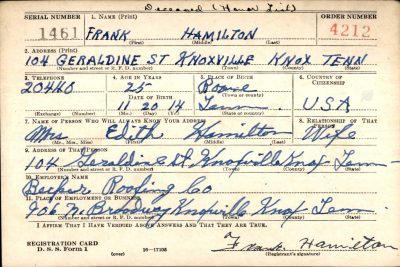 Deceased (Honor List)
SERIAL NUMBER 1. Name (Print) ORDER NUMBER
1461 FRANK HAMILTON 4212
(First) (Middle) (Last)
2. Address (Print)
104 GERALDINE ST KNOXVILLE KNOX TENN
(Number and street or R. F. D. number) (Town) (County) (State)
3. Telephone 4. Age in Years 5. Place of Birth 6. Country of Citizenship
20440 25 Boone
Date of Birth (Town or county)
11 20 14 Tenn. USA
(Mo.) (Day) (Yr.) (State or country)
7. Name of Person Who Will Always Know Your Address 8. Relationship of That Person
Mrs Edith Hamilton Wife
(Mr., Mrs., Miss) (First) (Middle) (Last)
9. Address of That Person
104 Geraldine St. Knoxville Knox Tenn
(Number and street or R. F. D. number) (Town) (County) (State)
10. Employer's Name
Roofing Co
11. Place of Employment or Business
906 N. Broadway Knoxville Knox Tenn.
(Number and street or R. F. D. number) (Town) (County) (State)
I Affirm That I Have Verified Above Answers and That They Are True.
REGISTRATION CARD
D. S. S. Form 1 16—17105 Frank Hamilton
(over) (Registrant's signature)